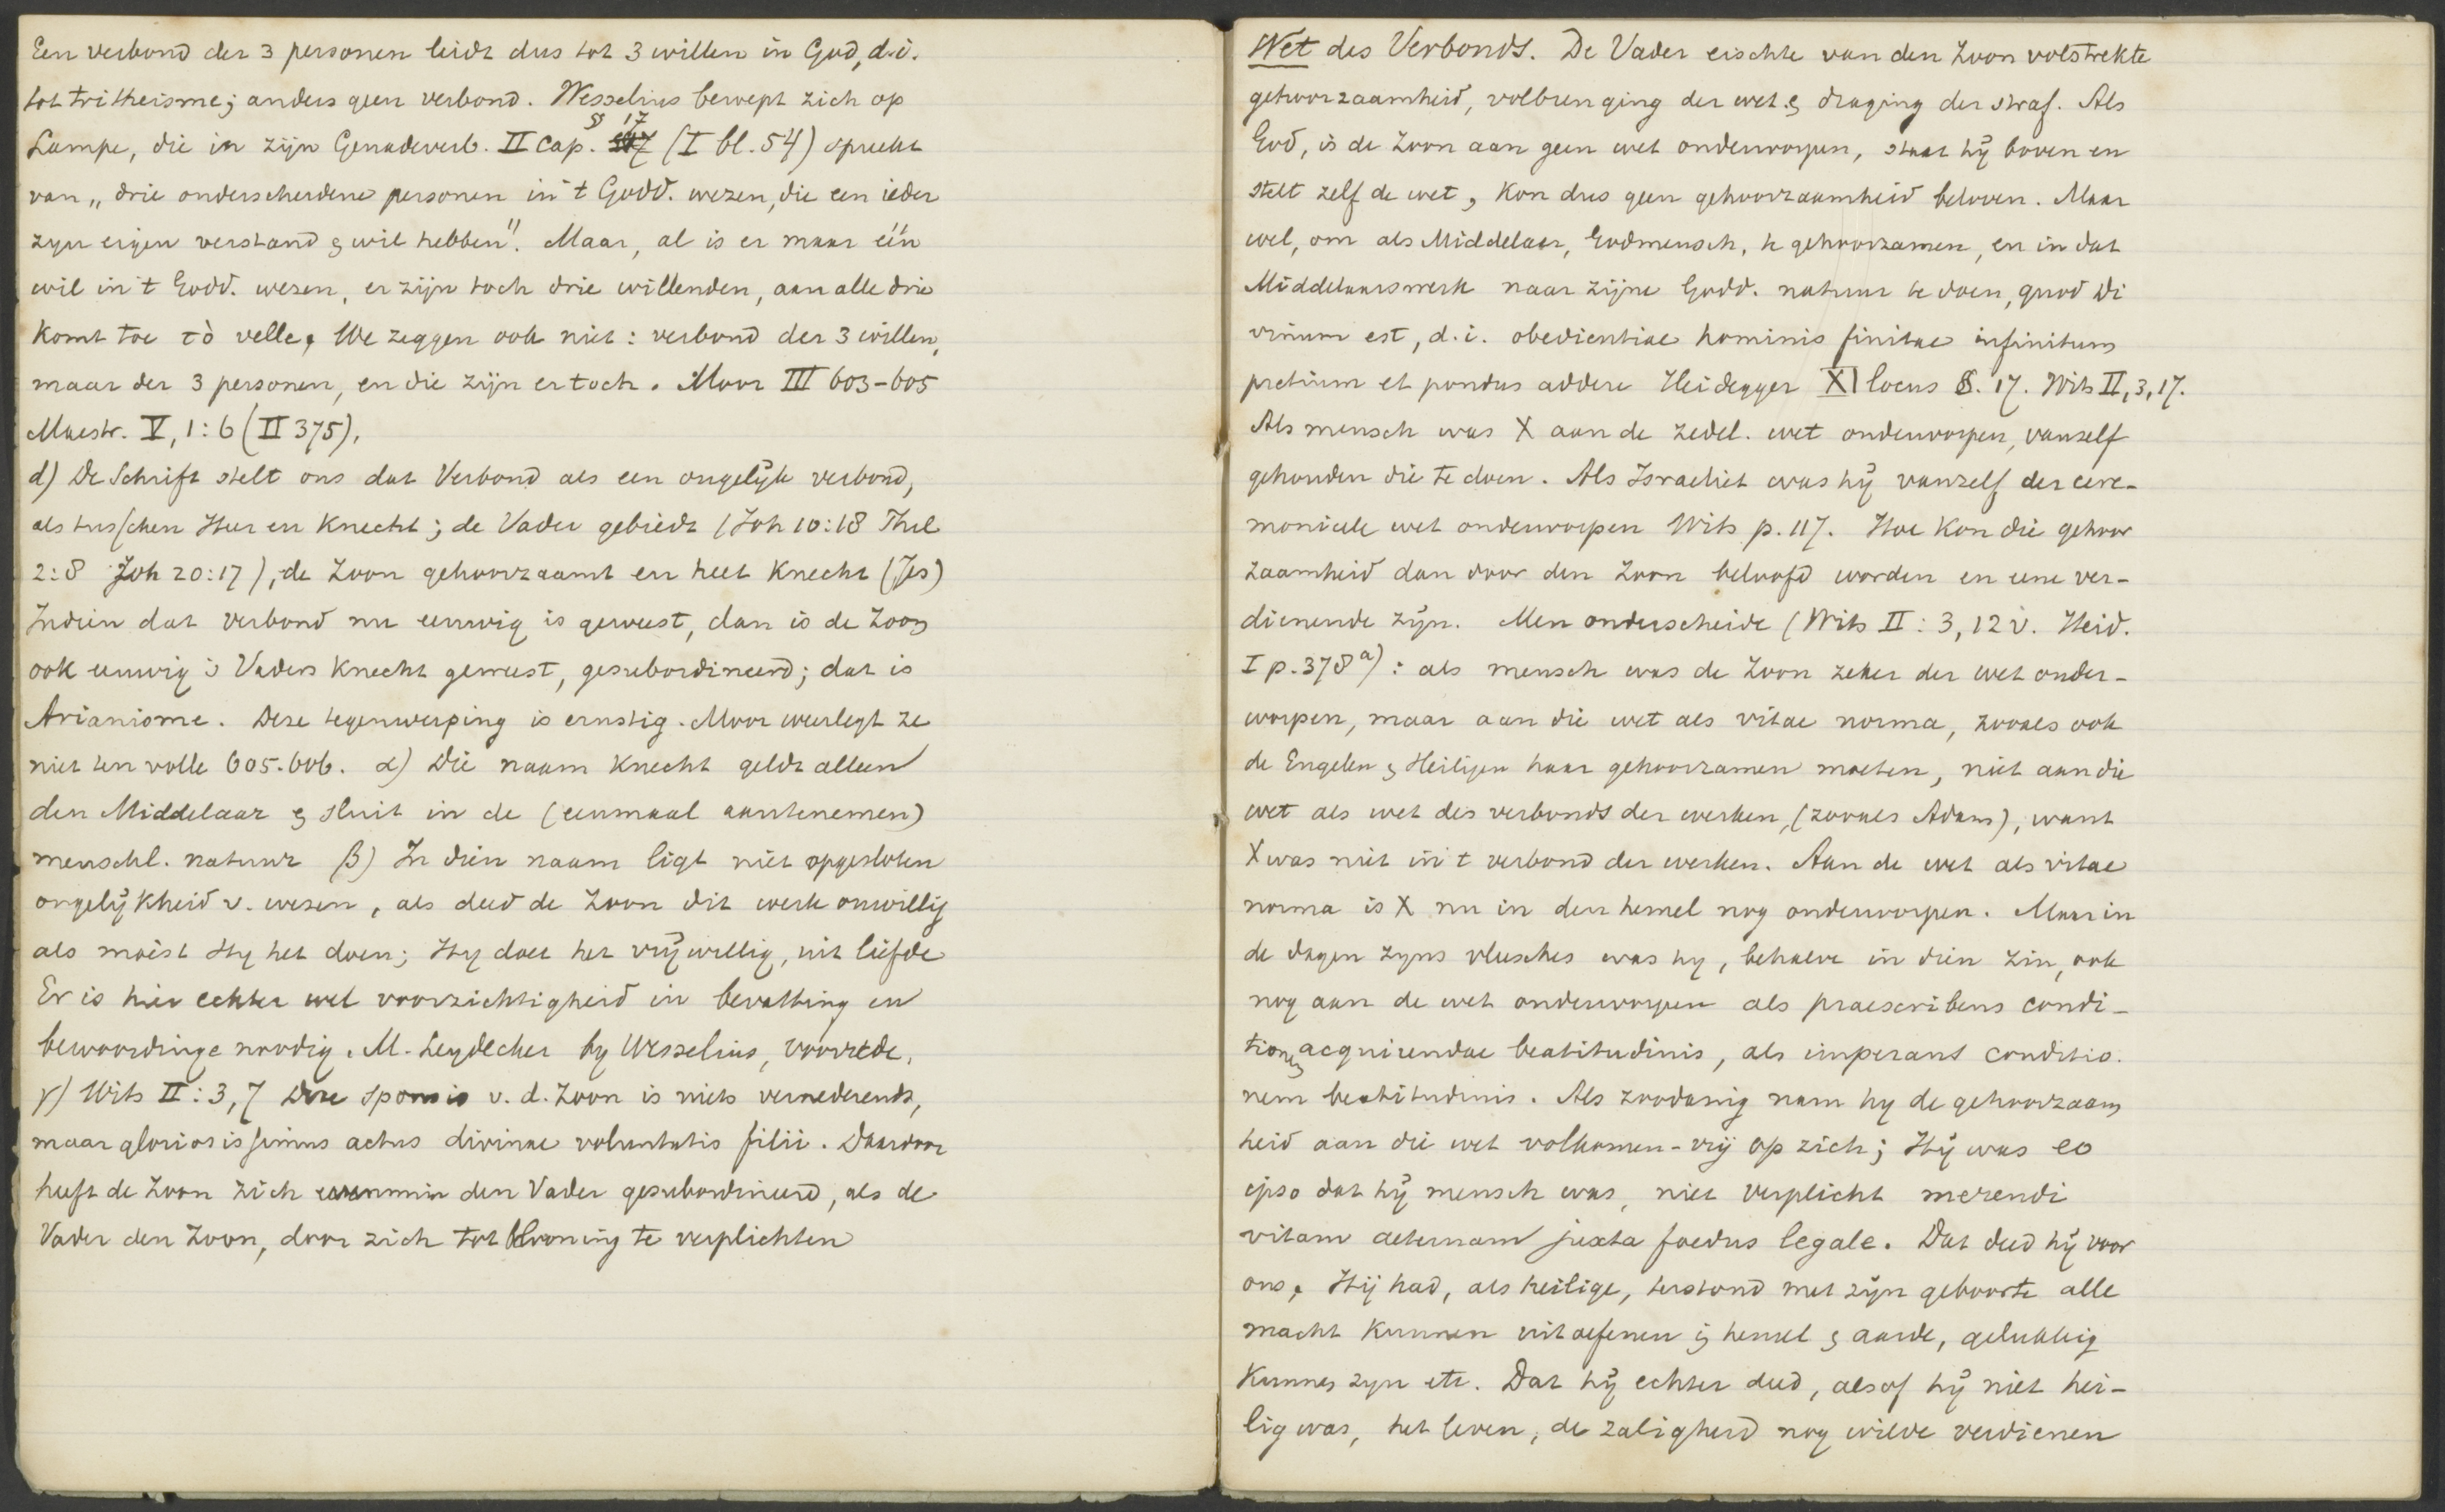 Een verbond der 3 personen leidt dus tot 3 willen in God, d.i.
tot tritheisme; anders geen verbond. Wesselius beroept zich op
Lampe, die in zijn Genadeverb. II Cap. § 17 (I bl. 54) spreekt
van „drie onderscheidene personen in 't Godd. wezen, die een ieder
zyn eigen verstand & wil hebben". Maar, al is er maar één
wil in 't Godd. wezen, er zijn toch drie willenden, aan alle drie
komt toe τὸ velle. We zeggen ook niet: verbond der 3 willen,
maar der 3 personen, en die zijn er toch. Moor III 603-605
Maestr. V, 1:6 (II 375).
d) De Schrift stelt ons dat Verbond als een ongelijk verbond,
als tusschen Heer en Knecht; de Vader gebiedt (Joh 10:18 Phil
2:8 Joh 20:17), de Zoon gehoorzaamt en heet Knecht (Jes)
Indien dat verbond nu eeuwig is geweest, dan is de Zoon
ook eeuwig 's Vaders Knecht geweest, gesubordineerd; dat is
Arianisme. Deze tegenwerping is ernstig. Moor weerlegt ze
niet ten volle 605.606. α) Die naam Knecht geldt alleen
den Middelaar & sluit in de (eenmaal aantenemen)
menschl. natuur β) In dien naam ligt niet opgesloten
ongelijkheid v. wezen, als deed de Zoon dit werk onwillig
als moest Hy het doen; Hy doet het vrijwillig, uit liefde
Er is hier echter wel voorzichtigheid in bevatting en
bewoordinge noodig. M. Leydecker by Wesselius, voorrede.
γ) Wits II:3,7 Deze sponsio v. d. Zoon is niets vernederends,
maar gloriosissimus actus divinae voluntatis filii. Daardoor
heeft de Zoon zich evenmin den Vader gesubordineerd, als de
Vader den Zoon, door zich tot Kroning te verplichten
Wet des Verbonds. De Vader eischte van den Zoon volstrekte
gehoorzaamheid, volbrenging der wet & draging der straf. Als
God, is de Zoon aan geen wet onderworpen, staat hij boven en
stelt zelf de wet, kon dus geen gehoorzaamheid beloven. Maar
wel, om als Middelaar, Godmensch, te gehoorzamen, en in dat
Middelaarswerk naar zijne Godd. natuur te doen, quod di
vinum est, d.i. obedientiae hominis finitae infinitum
pretium et pondus addere Heidegger XI locus §. 17. Wits II, 3, 17.
Als mensch was X aan de zedel. wet onderworpen, vanzelf
gehouden die te doen. Als Israeliet was hij vanzelf der cere-
monieele wet onderworpen Wits p. 117. Hoe kon die gehoor
zaamheid dan door den Zoon beloofd worden en eene ver-
dienende zijn. Men onderscheide (Wits II:3, 12 v. Heid.
I p. 378 a): als mensch was de Zoon zeker der wet onder-
worpen, maar aan die wet als vitae norma, zooals ook
de Engelen & Heiligen haar gehoorzamen moeten, niet aan die
wet als wet des verbonds der werken, (zooals Adam), want
X was niet in 't verbond der werken. Aan de wet als vitae
norma is X nu in den hemel nog onderworpen. Maar in
de dagen zyns vleesches was hy, behalve in dien zin, ook
nog aan de wet onderworpen als praescribens condi-
tionem acquirendae beatitudinis, als imperans conditio.
nem beatitudinis. Als zoodanig nam hy de gehoorzaam
heid aan die wet volkomen-vrij op zich; Hij was eo
ipso dat hij mensch was, niet verplicht merendi
vitam aeternam juxta foedus legale. Dat deed hij voor
ons. Hij had, als heilige, terstond met zijn geboorte alle
macht kunnen uitoefenen in hemel & aarde, gelukkig
kunnen zyn etc. Dat hij echter deed, alsof hij niet hei-
lig was, het leven, de zaligheid nog wilde verdienen